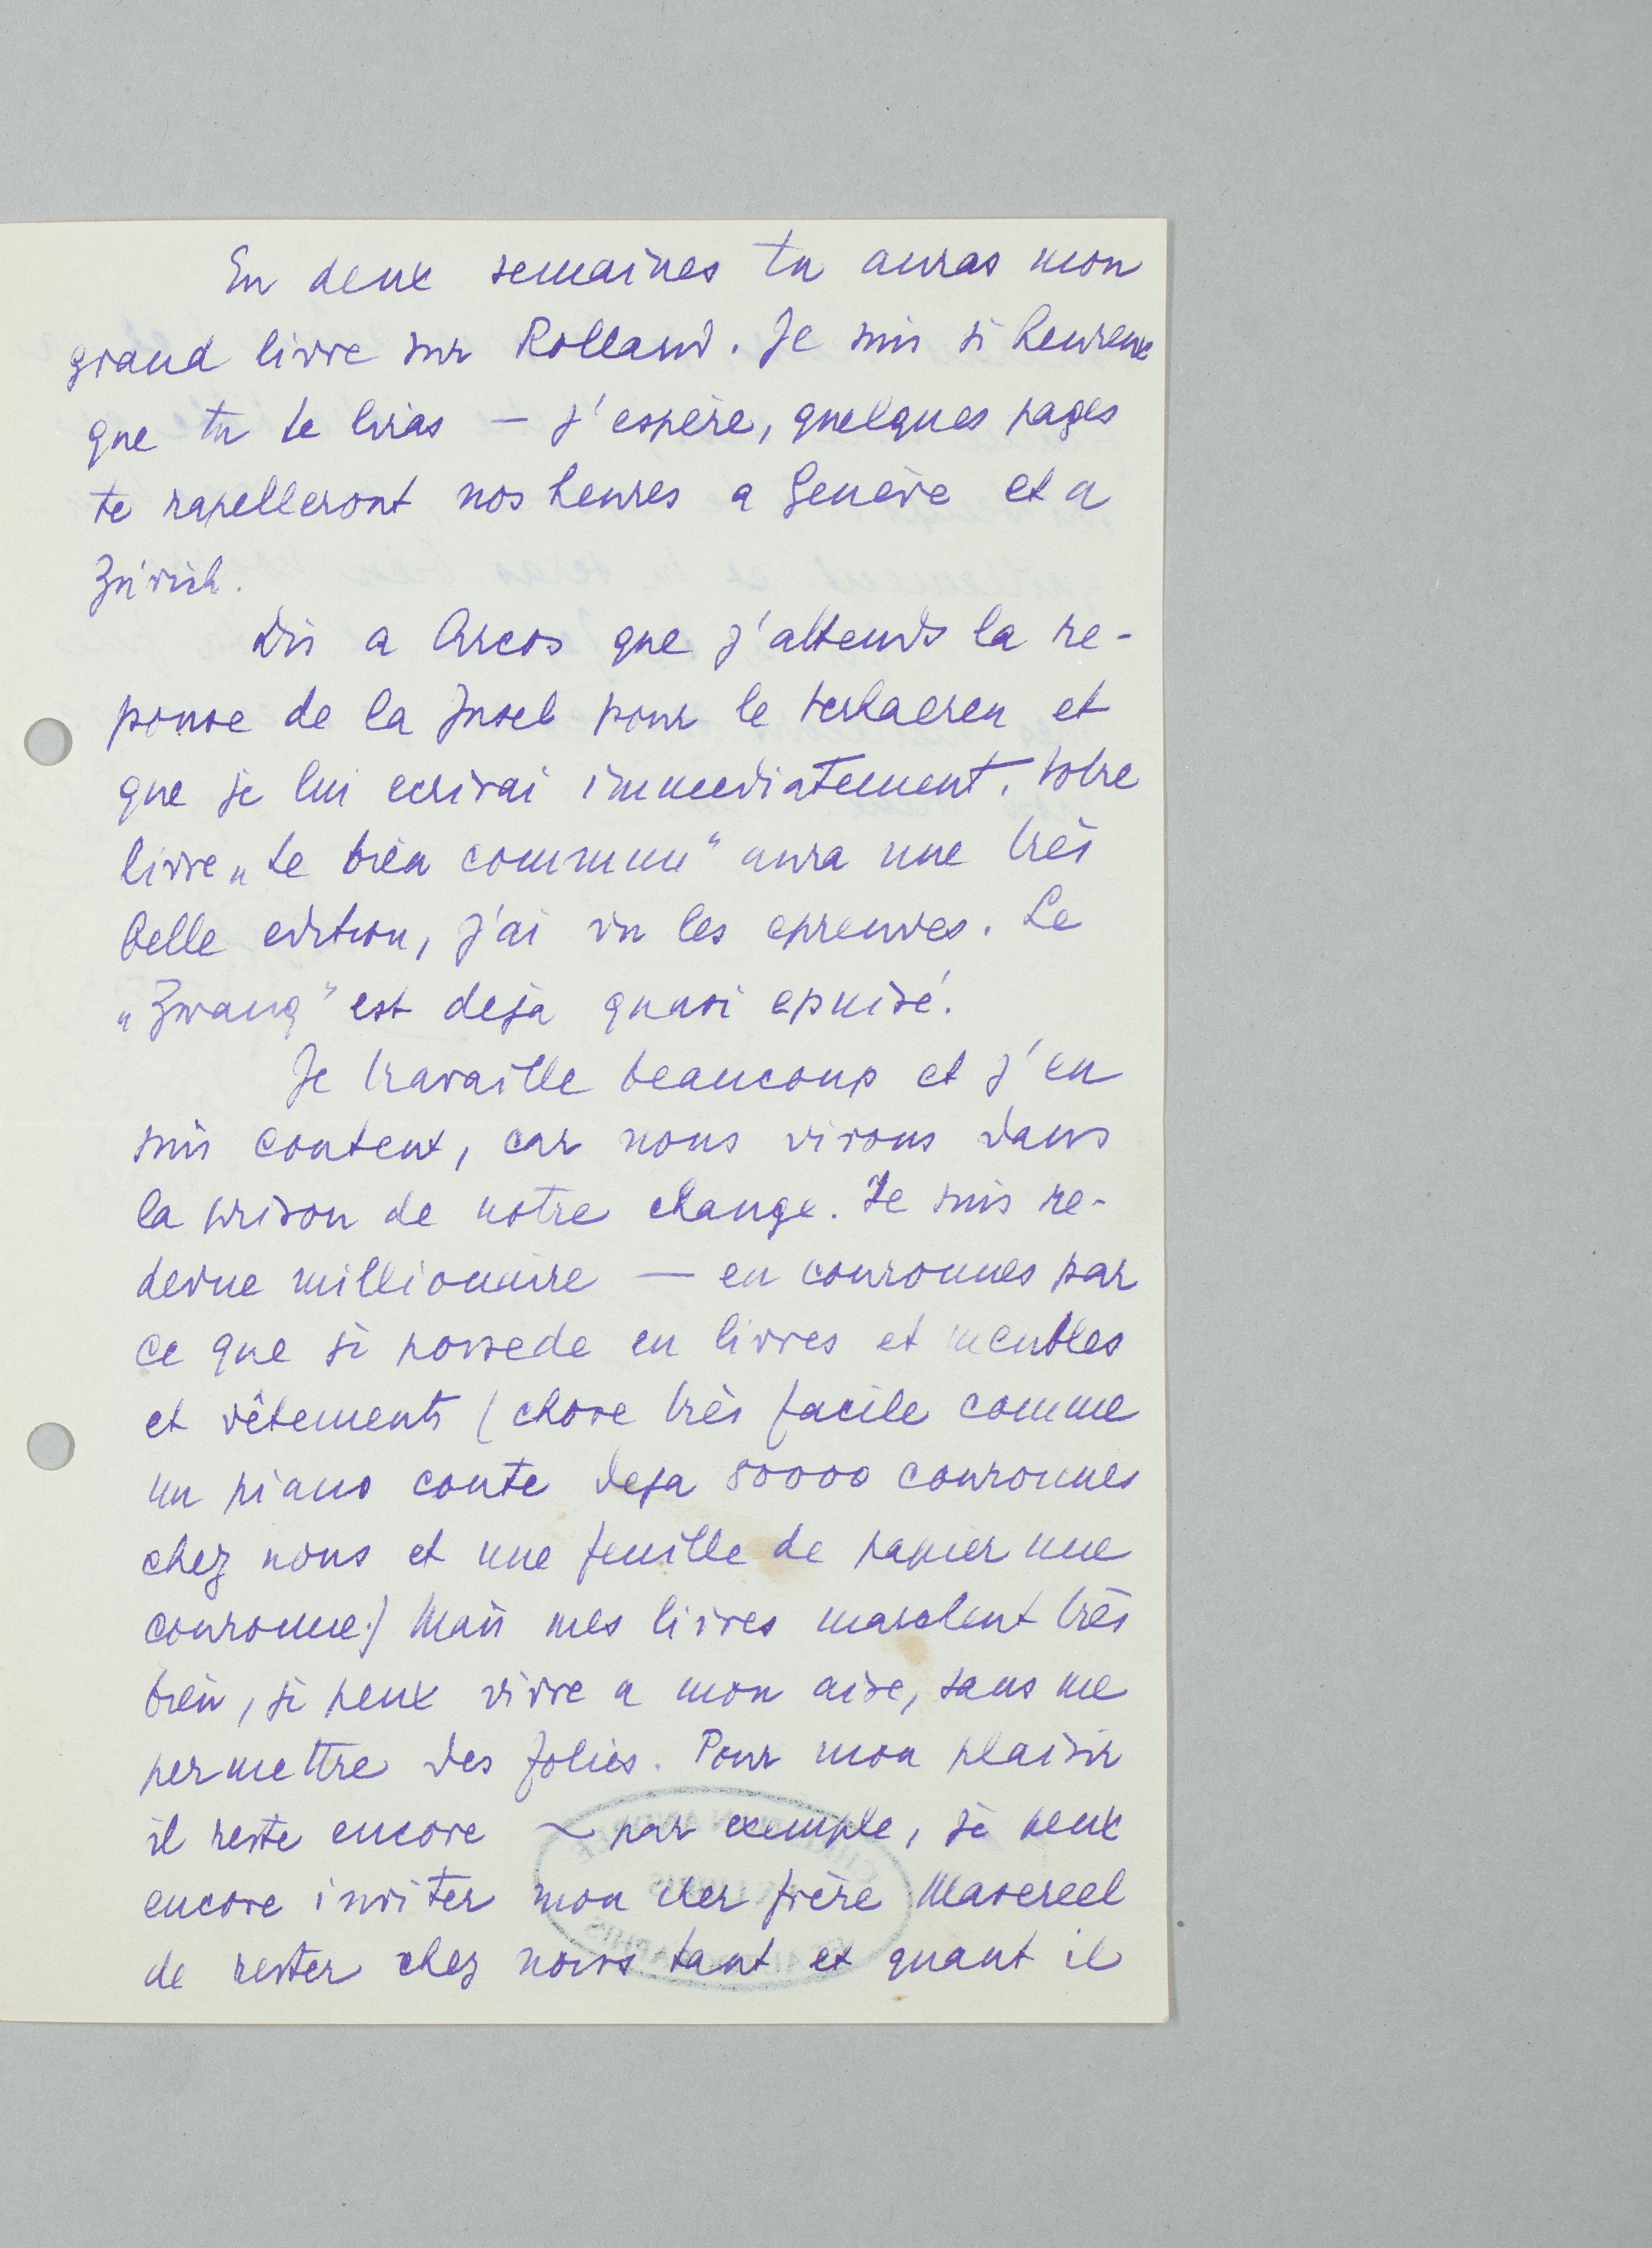 En deux semaines tu auras mon
grand livre sur Rolland. Je suis si heureux
que tu le liras — j'espère, quelques pages
te rapelleront nos heures a Genève et a
Zürich.
Dis a Arcos que j'attends la re-
ponse de la Insel pour le Verhaeren et
que je lui ecrirai immediatement. Votre
livre „Le bien commun" aura une très
belle edition, j'ai vu les epreuves. Le
„Zwang" est deja quasi epuisé.
Je travaille beaucoup et j'en
suis content, car nous vivons dans
la prison de notre change. Je suis re-
devue millionaire — en couronnes par
ce que je possede en livres et meubles
et vêtements (chose très facile comme
un piano coute deja 80000 couronnes
chez nous et une feuille de papier une
couronne.) Mais mes livres marchent très
bien, je peux vivre a mon aise, sans me
permettre des folies. Pour mon plaisir
il reste encore — par exemple, je peux
encore inviter mon cher frère Masereel
de rester chez nous tant et quant il